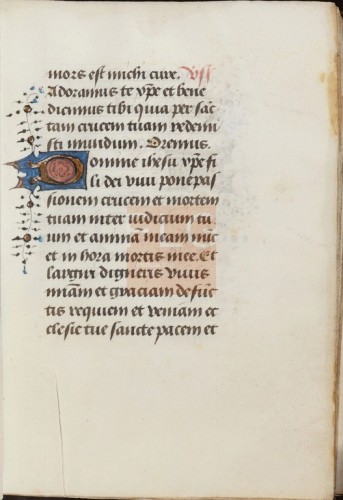 mors est michi cure. Vss
Adoramus te xp̄e et bene
dicimus tibi quia per sāc
tam crucem tuam redemi
sti mundum. Oremus.
Domine ihesu xp̄e fi
li dei viui pone pas
sionem crucem et mortem
tuam inter iudicium tu
um et animā meam nūc
et in hora mortis mee. Et
largiri digneris viuis
miām et graciam defūc
tis requiem et veniam et
clesie tue sancte pacem et